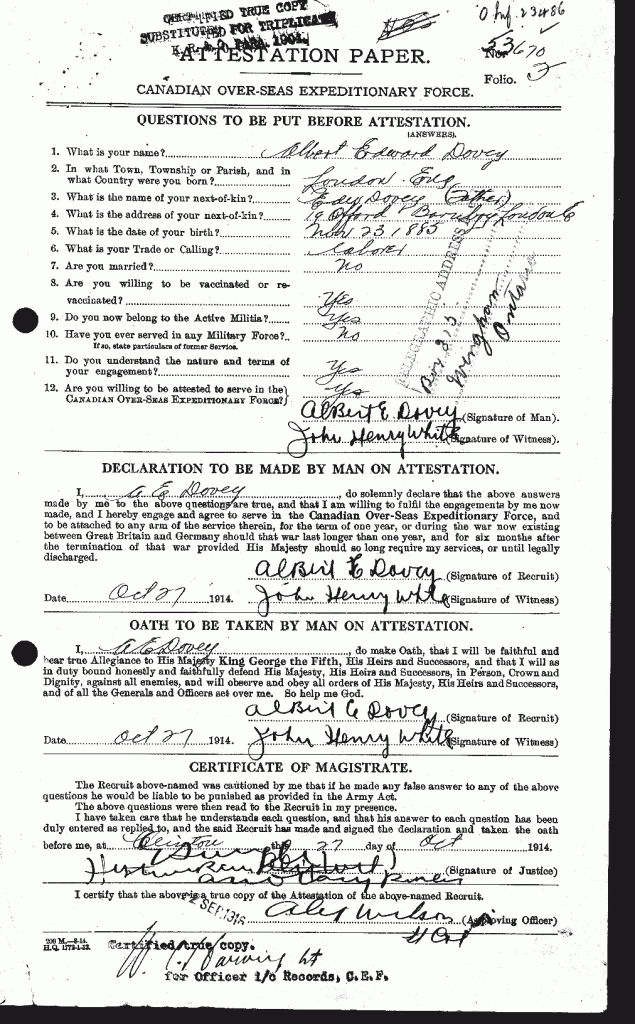 CERTIFIED TRUE COPY
SUBSTITUTED FOR TRIPLICATE
K.R. & O. PARA. 1904.
23486
ATTESTATION PAPER.
No. 53670
Folio. 3
CANADIAN OVER-SEAS EXPEDITIONARY FORCE.
QUESTIONS TO BE PUT BEFORE ATTESTATION.
(ANSWERS).
1. What is your name? Albert Edward Dovey
2. In what Town, Township or Parish, and in
what Country were you born? London Eng
3. What is the name of your next-of-kin? Edw Dovey (Father)
4. What is the address of your next-of-kin? 19 Offord Barnsbury London
5. What is the date of your birth? Nov 23 1885
6. What is your Trade or Calling? Laborer
7. Are you married? No
8. Are you willing to be vaccinated or re-
vaccinated? Yes
9. Do you now belong to the Active Militia? Yes
10. Have you ever served in any Military Force? No
If so, state particulars of former Service.
11. Do you understand the nature and terms of
your engagement? Yes
12. Are you willing to be attested to serve in the
CANADIAN OVER-SEAS EXPEDITIONARY FORCE? Yes
TELEGRAPHIC ADDRESS
Box 313
Wingham
Ontario
Albert E Dovey (Signature of Man).
John Henry White (Signature of Witness).
DECLARATION TO BE MADE BY MAN ON ATTESTATION.
I, A E Dovey, do solemnly declare that the above answers
made by me to the above questions are true, and that I am willing to fulfil the engagements by me now
made, and I hereby engage and agree to serve in the Canadian Over-Seas Expeditionary Force, and
to be attached to any arm of the service therein, for the term of one year, or during the war now existing
between Great Britain and Germany should that war last longer than one year, and for six months after
the termination of that war provided His Majesty should so long require my services, or until legally
discharged.
Albert E Dovey (Signature of Recruit)
Date Oct 27 1914. John Henry White (Signature of Witness)
OATH TO BE TAKEN BY MAN ON ATTESTATION.
I, A E Dovey, do make Oath, that I will be faithful and
bear true Allegiance to His Majesty King George the Fifth, His Heirs and Successors, and that I will as
in duty bound honestly and faithfully defend His Majesty, His Heirs and Successors, in Person, Crown and
Dignity, against all enemies, and will observe and obey all orders of His Majesty, His Heirs and Successors,
and of all the Generals and Officers set over me. So help me God.
Albert E Dovey (Signature of Recruit)
Date Oct 27 1914. John Henry White (Signature of Witness)
CERTIFICATE OF MAGISTRATE.
The Recruit above-named was cautioned by me that if he made any false answer to any of the above
questions he would be liable to be punished as provided in the Army Act.
The above questions were then read to the Recruit in my presence.
I have taken care that he understands each question, and that his answer to each question has been
duly entered as replied to, and the said Recruit has made and signed the declaration and taken the oath
before me, at Clinton this 27 day of Oct 1914.
(Signature of Justice)
I certify that the above is a true copy of the Attestation of the above-named Recruit.
2 SEP 1916
Alex Wilson (Approving Officer)
Lt Col
200 M.—8-14.
H.Q. 1772-1-13.
Certified true copy.
Lt
for Officer i/c Records, C.E.F.